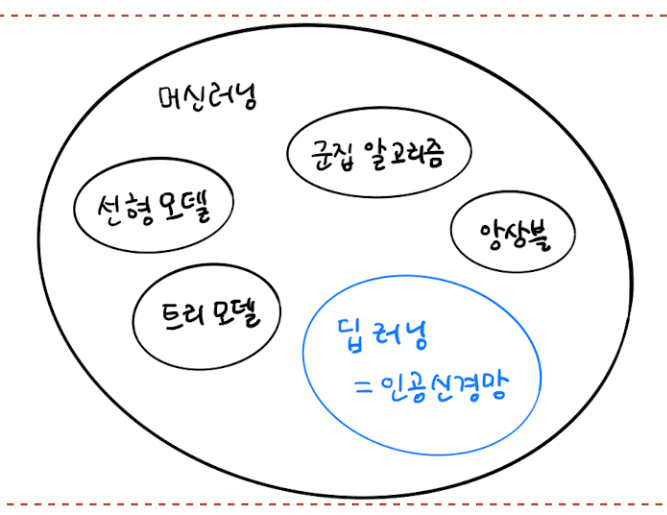 머신러닝
군집 알고리즘
선형 모델
앙상블
트리 모델
딥러닝
= 인공신경망